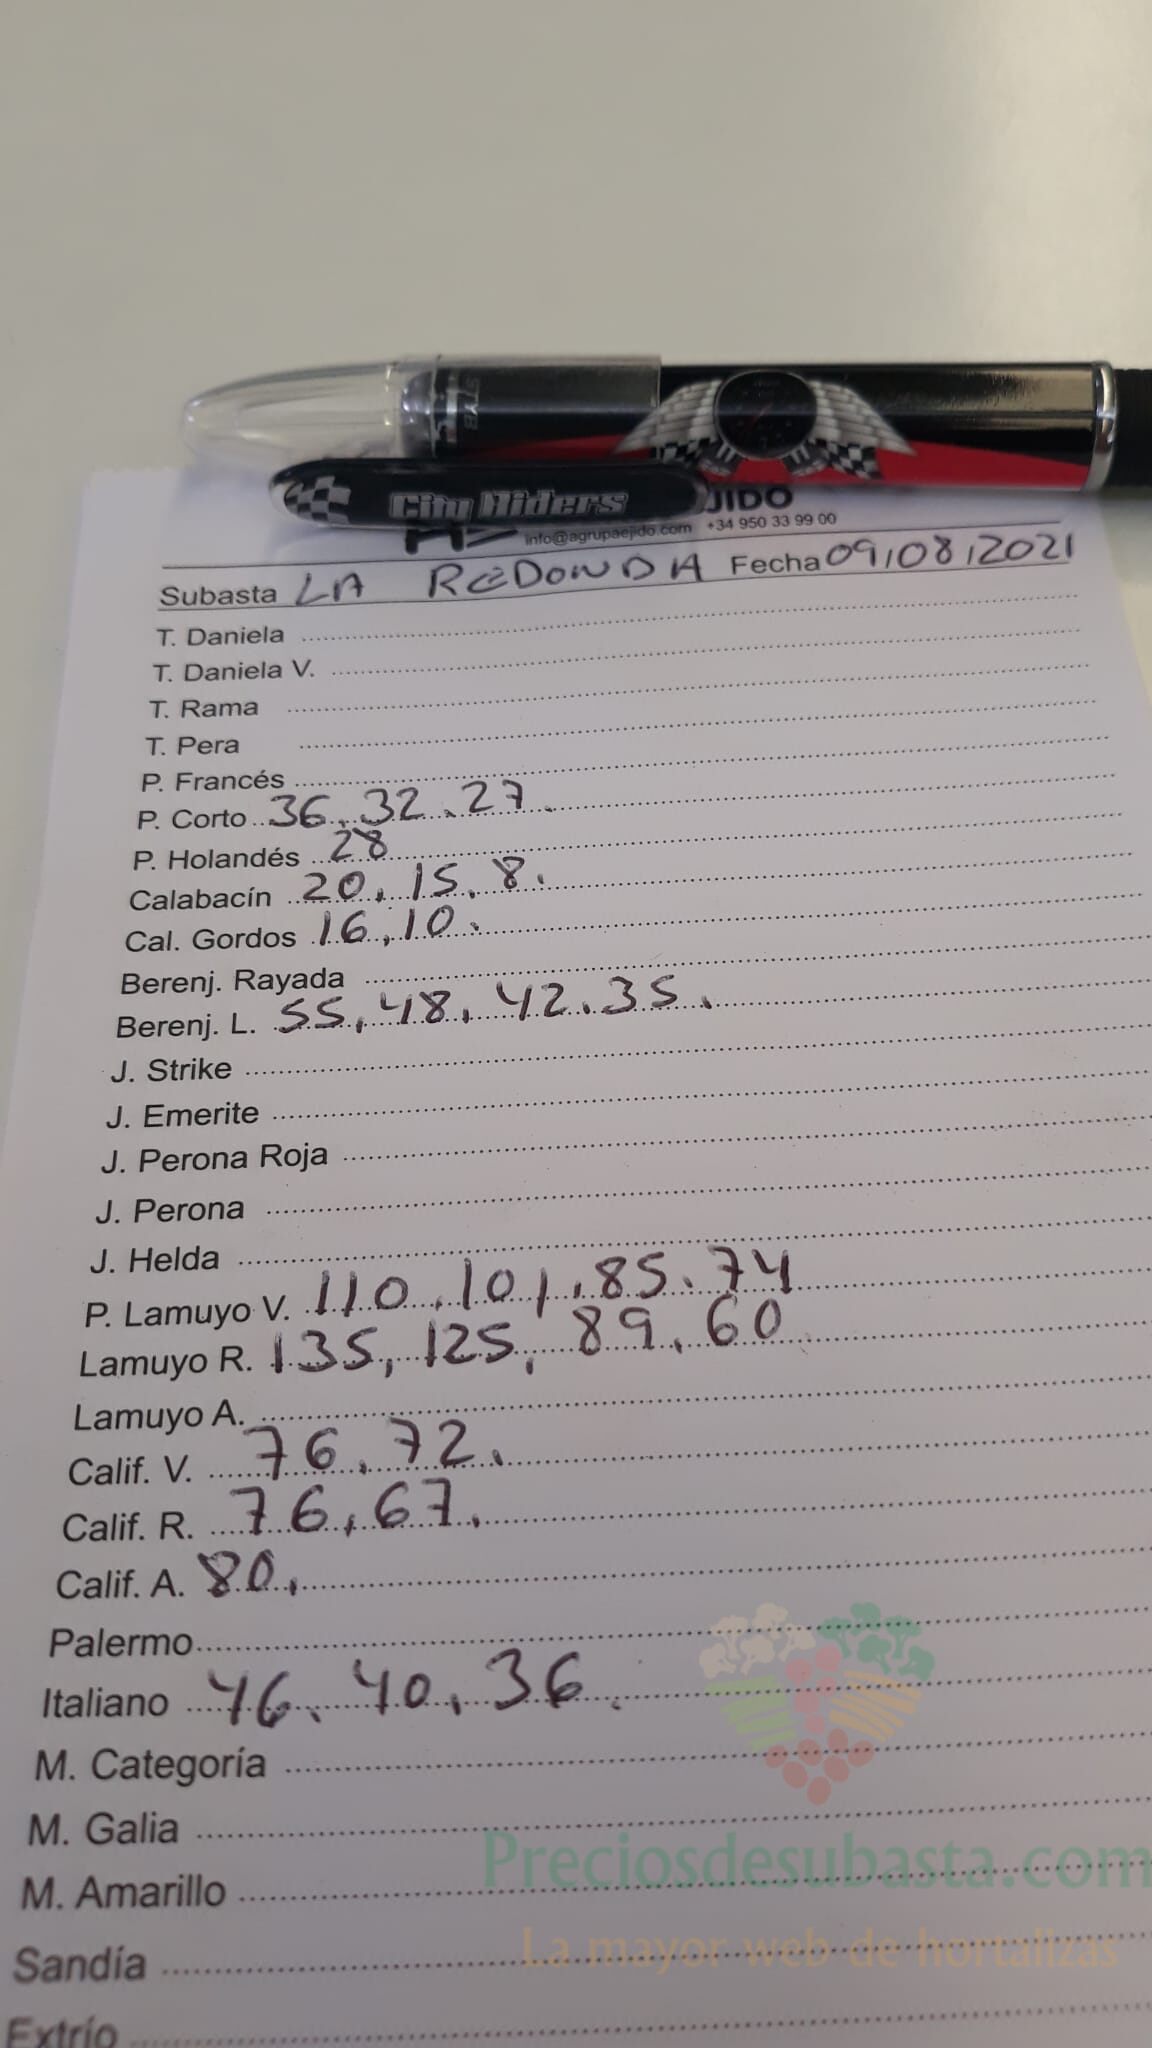 STYB
City Riders
JIDO
info@agrupaejido.com +34 950 33 99 00
Subasta LA REDONDA Fecha 09/08/2021
T. Daniela
T. Daniela V.
T. Rama
T. Pera
P. Francés
P. Corto 36, 32, 27.
P. Holandés 28
Calabacín 20, 15, 8.
Cal. Gordos 16, 10.
Berenj. Rayada
Berenj. L. 55, 48, 42, 35.
J. Strike
J. Emerite
J. Perona Roja
J. Perona
J. Helda
P. Lamuyo V. 110, 101, 85, 74
Lamuyo R. 135, 125, 89, 60
Lamuyo A.
Calif. V. 76, 72.
Calif. R. 76, 67.
Calif. A. 80,
Palermo
Italiano 46, 40, 36.
M. Categoría
M. Galia
M. Amarillo
Sandía
Extrío
Preciosdesubasta.com
La mayor web de hortalizas